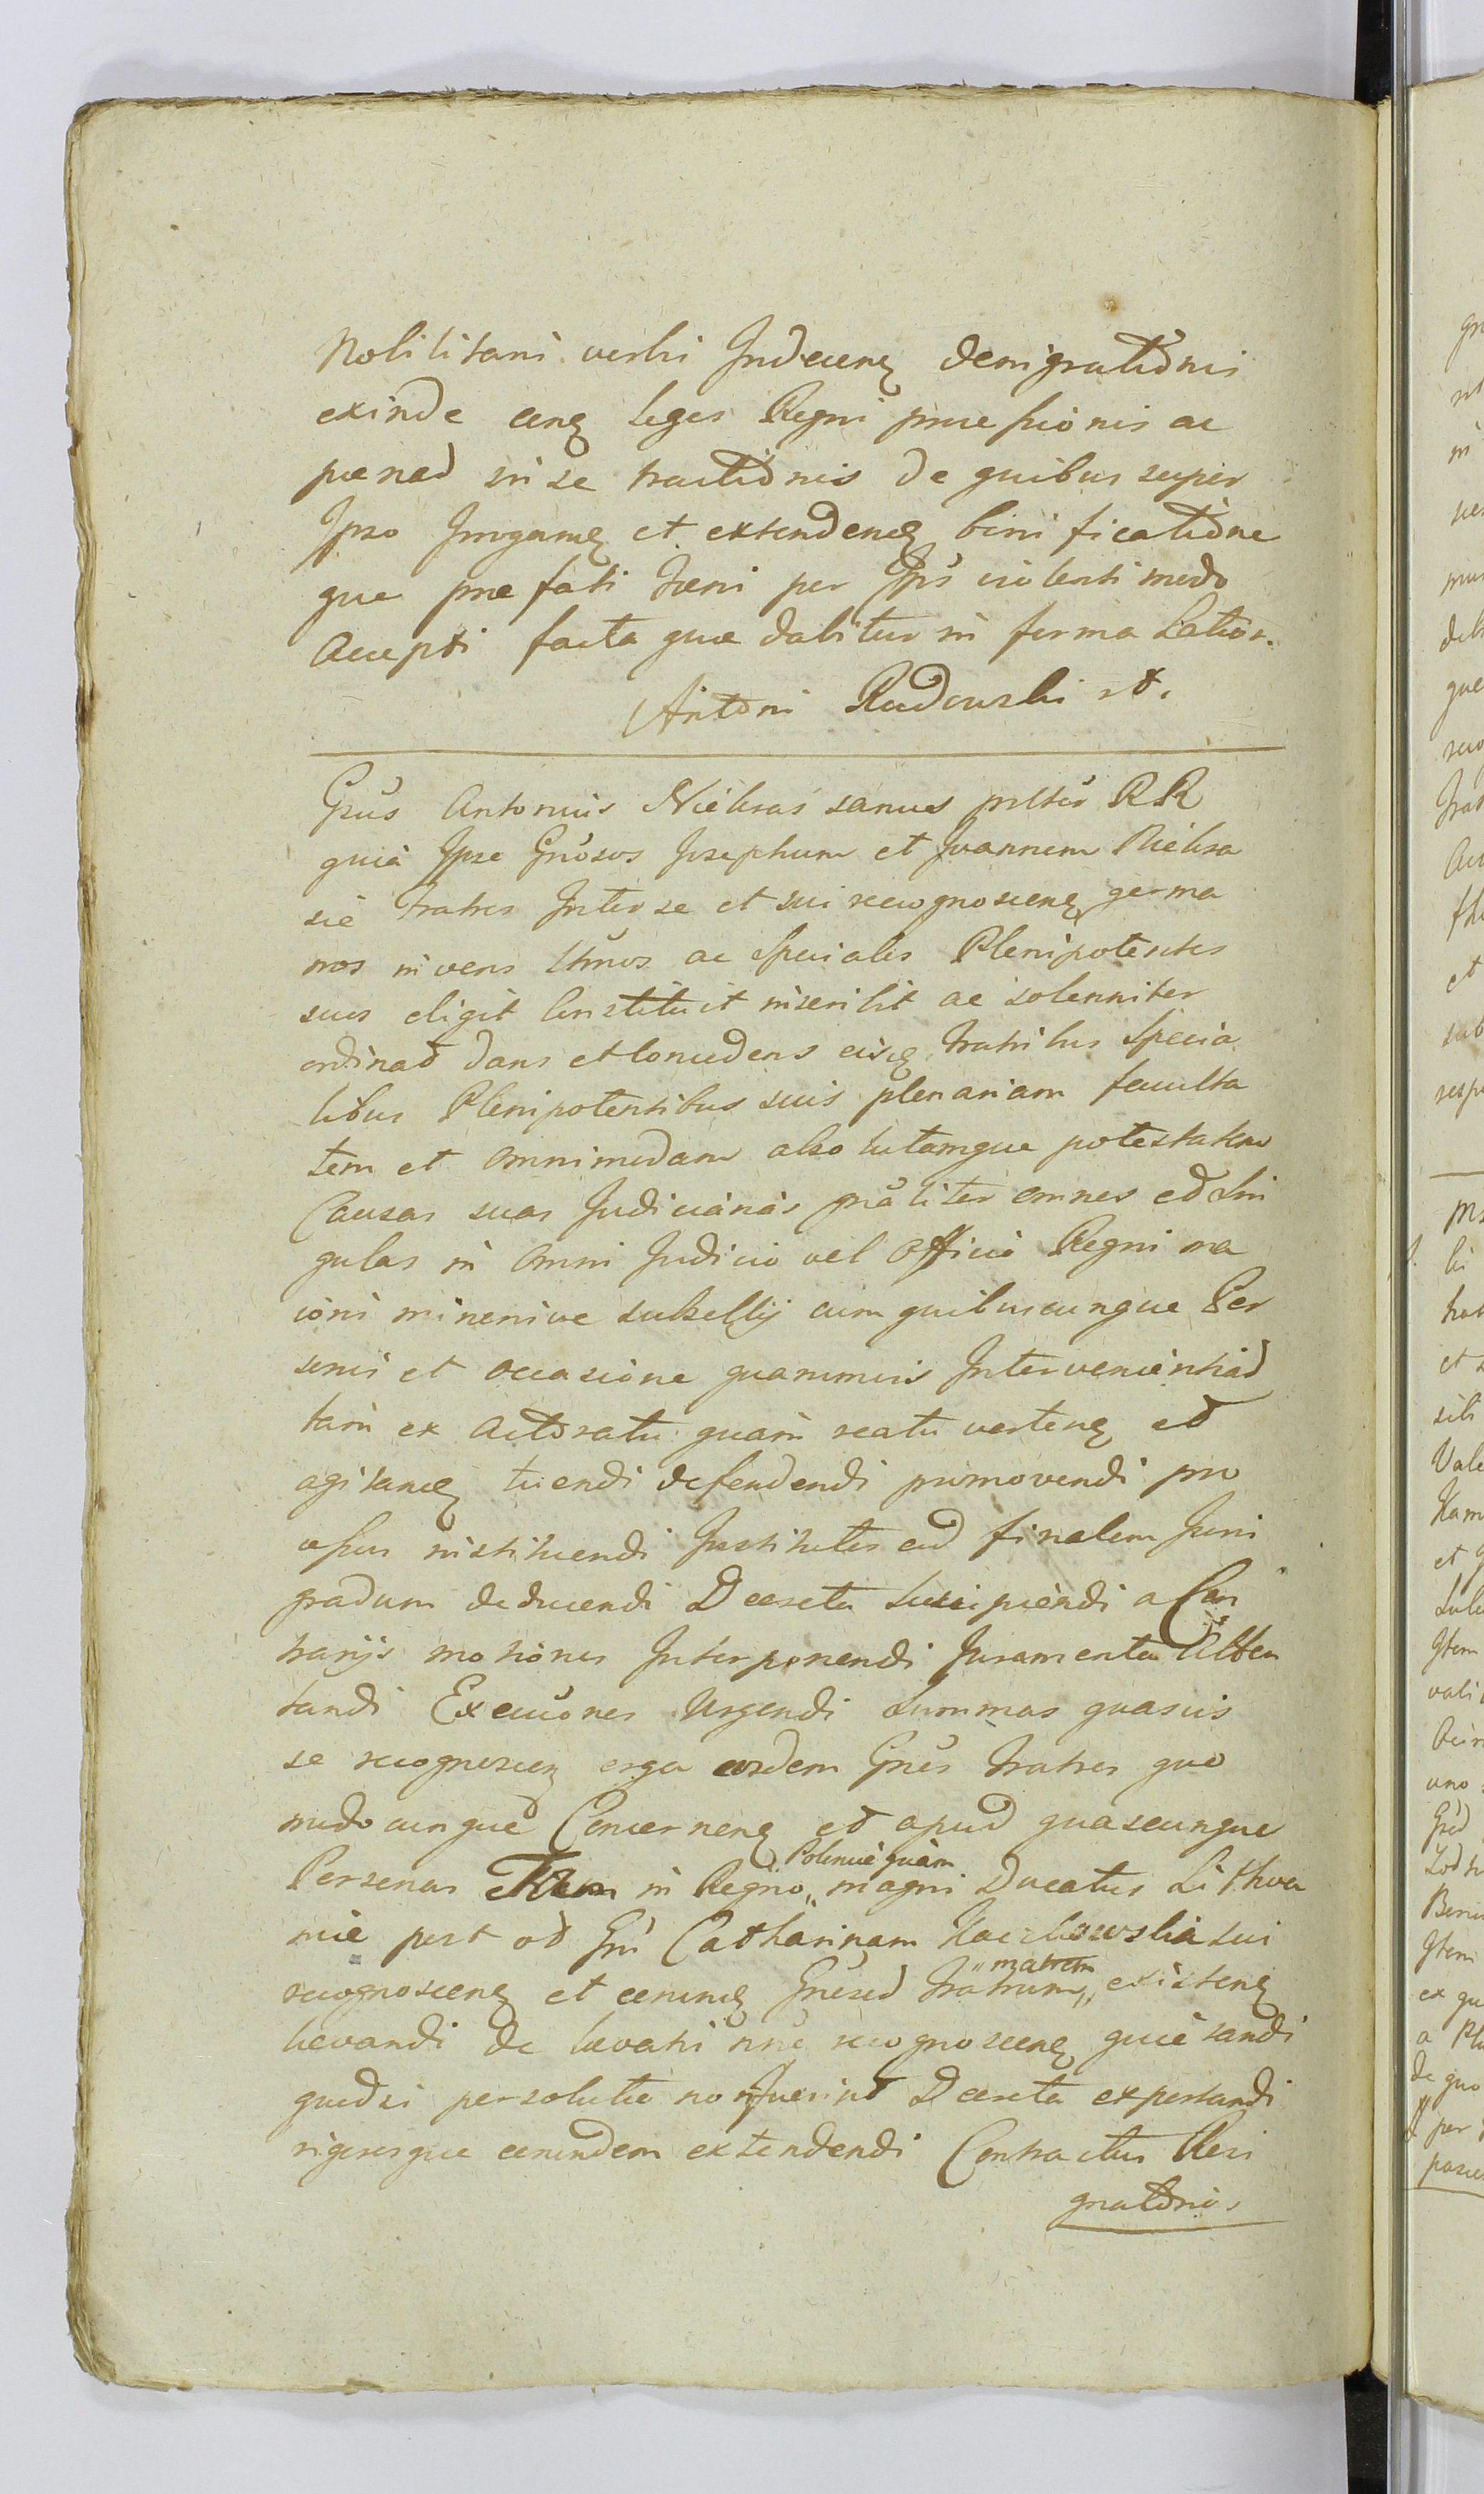 Nobilitari verbi Indecenȩ denigrationis
exinde cenȩ leges Regni prue sionis ac
pœnas in se tractionis de quibus super
Ipso Irrogamȩ et extendenȩ bini ficatione
que præfati fœni per Ipsũ violenti modo
Accepti facta quæ dabitur in forma Latior.
Antoni Rudowski
Gñus Antonius Niebras sanus RR
quia Ipse Gñosos Josephum et Joannem Niebra
sie fratres Inter se et sui recognoscenȩ germa
nos in veros ltĩmos ac speciales Plenipotentes
suos eligit Constituit inscribit ac solenniter
ordinat dans et Concedens eisȩ fratribus Specia
libus Plenipotentibus suis plenariam faculta
tem et omnimodam absolutamque potestatem
Causas suas Judiciarias gnãliter omnes et Sin
gulas in omni Judicio vel Officio Regni ma
ioris minorisve subsellij cum quibuscunque Per
sonis et occasione quarumvis Intervenientiad
tam ex Actoratu quam reatu vertenȩ et
agitanȩ tuendi defendendi promovendi pro
opus instituendi Institutas ad finalem Juris
gradum deducendi Decreta suscipiendi a Con
trarijs motiones Interponendi Juramenta Atten
tandi Execuõnes Urgendi Summas quasvis
se recognoscenȩ erga eosdem Gnõs fratres quo
modo cunque Concernenȩ et apud quascunque
Personas Tam in Regno „ Poloniæ quam magni Ducatus Lithva
niæ post ot Gñ Catharinam sui
recognoscenȩ et Gñosod fratrum „ matrem existenȩ
levandi de levatis recognoscenȩ quietandi
quodsi persolutæ non fuerint Decreta exportandi
rigoresque eorundem extendendi Contractus Resi
gnatorios